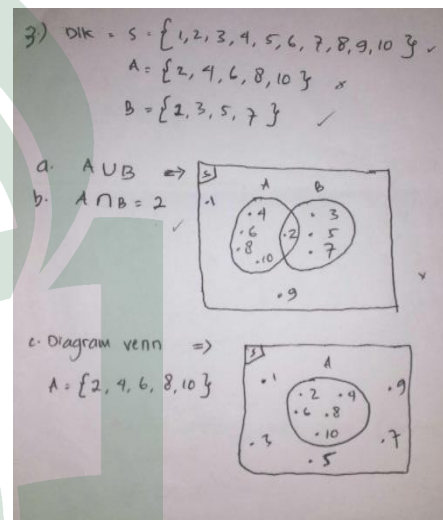 3.) Dik = S = {1,2,3,4,5,6,7,8,9,10}
A = {2,4,6,8,10}
B = {2,3,5,7}
a. A ∪ B =>
b. A ∩ B = 2
S
A B
.1
.4 .3
.6 .2 .5
.8 .7
.10
.9
c. Diagram venn =>
A = {2,4,6,8,10}
S
A
.1 .2 .4 .9
.6 .8
.3 .10 .7
.5